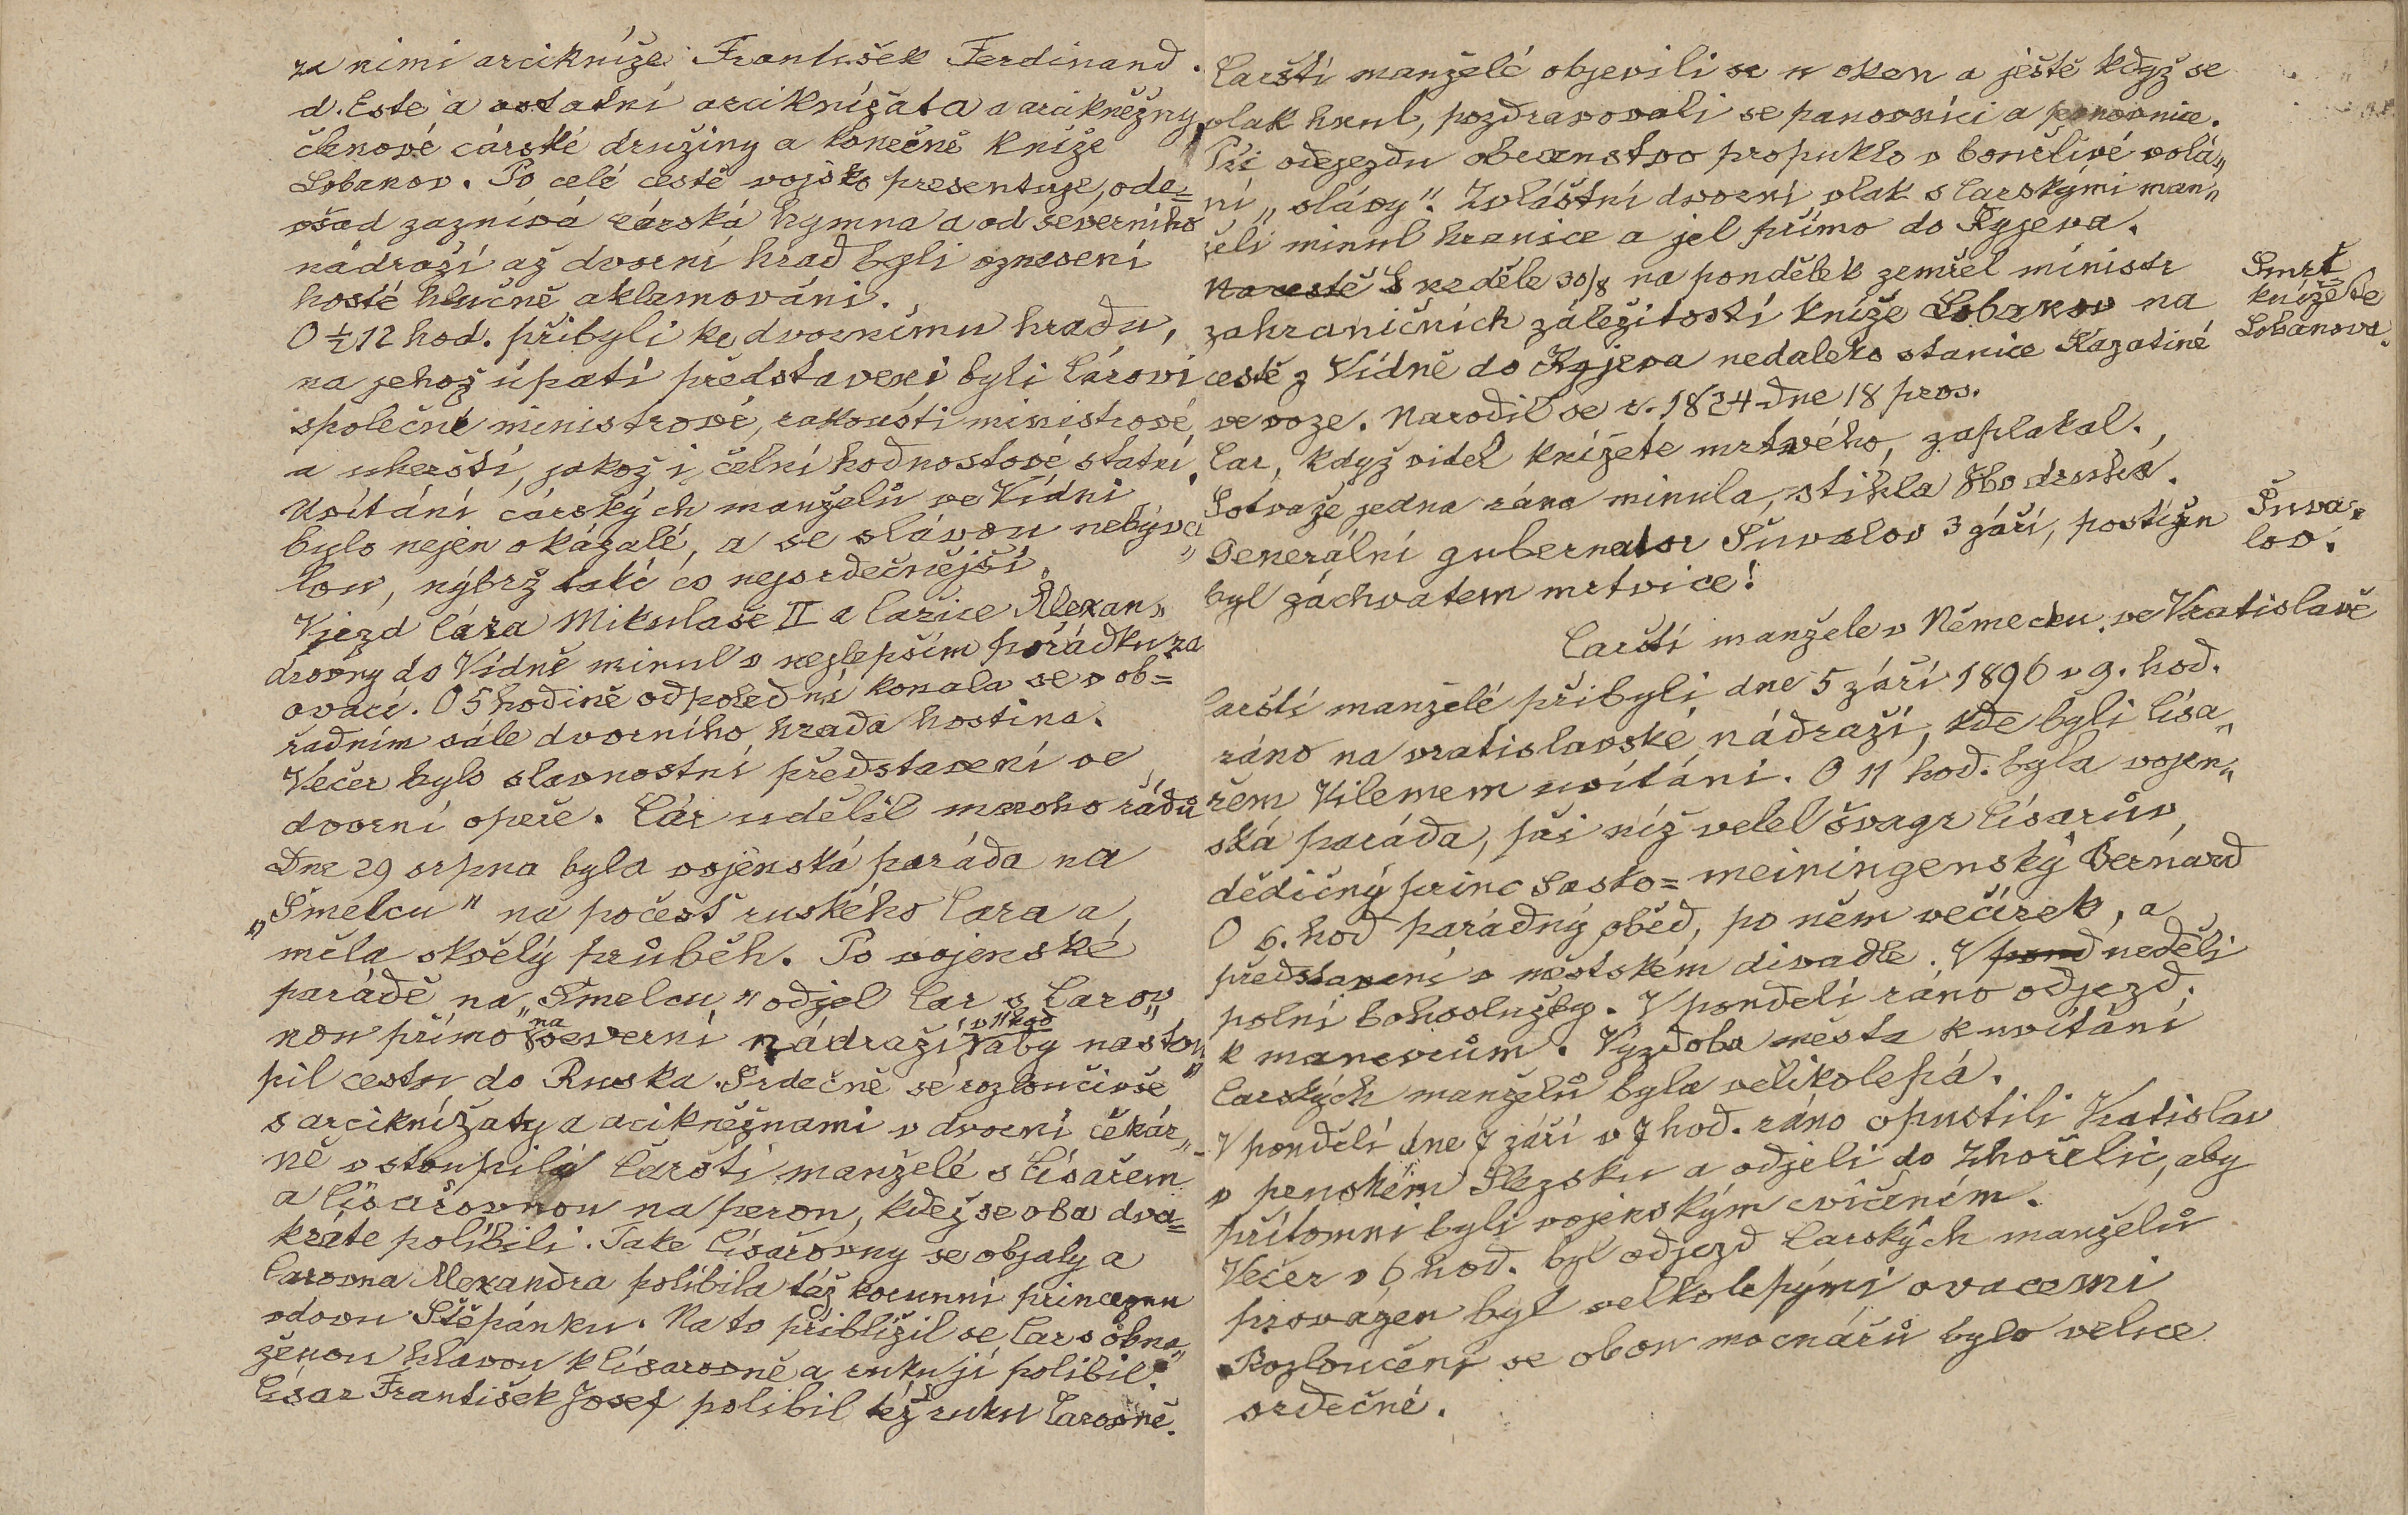 za nimi arcikníže František Ferdinand.
d. Este a ostatní arciknížata a arcikněžny,
členové cárské družiny a konečně kníže
Lobanov. Po celé cestě vojsko presentuje, ode=
všad zaznívá cárská hymna a od severního
nádraží až dvorní hrad byli vznešení
hosté hlučně aklamováni.
O ½12 hod. přibyli ke dvornímu hradu,
na jehož úpatí představeni byli Cárovi
společné ministrové, rakouští ministrové
a uherští, jakož i čelní hodnostové státní.
Uvítání cárských manželů ve Vídni
bylo nejen okázalé, a se slávou nebýva„
lou, nýbrž také co nejsrdečnější.
Vjezd Cára Mikuláše II a Cařice Alexan„
drovny do Vídně minul v nejlepším pořádku za
ovací. O 5 hodině odpolední konala se v ob=
řadním sále dvorního hrada hostina.
Večer bylo slavnostní představení ve
dvorní opeře. Cár udělil mnoho řádů
Dne 29 srpna byla vojenská paráda na
„Šmelcu" na počest ruského Cara a
měla skvělý průběh. Po vojenské
parádě na „Šmelcu" odjel Car s Carov„
nou přímo na severní nádraží v 11 hod aby nastou„
pil cestu do Ruska. Srdečně se rozloučivše
s arciknížaty a acikněžnami v dvorní čekár„
ně vstoupily Carští manželé s Císařem
a Císařovnou na peron, kdež se oba dva=
kráte políbili. Také Císařovny se objaly a
Carovna Alexandra políbila též korunní princeznu
vdovu Štěpánku. Na to přiblížil se Car s obna„
ženou hlavou k Císarovně a ruku jí políbil.
Císar František Josef políbil též ruku Carovně.
Carští manželé objevili se u oken a ještě když se
vlak hnul, pozdravovali se panovníci a panovnice.
Při odejezdu obecenstvo propuklo v bouřlivé volá„
ní „slávy". Zvláštní dvorní vlak s Carskými man„
želi minul hranice a jel přímo do Kyjeva.
Na cestě S neděle 30/8 na pondělek zemřel ministr
zahraničních záležitostí kníže Lobanov na
cestě z Vídně do Kyjeva nedaleko stanice Kazatiné
ve voze. Narodil se r. 1824 dne 18 pros.
Car, když videl knížete mrtvého, zaplakal.
Sotva že jedna rána minula, stihla Ho druhá.
Generální gubernator Šuvalov 3 září, postižen
byl záchvatem mrtvice!
Smrt
knížete
Lobanova.
Šuva„
lov.
Carští manžele v Německu. ve Vratislavě
Carští manželé přibyli dne 5 září 1896 v 9. hod.
ráno na vratislavské nádraží, kde byli Císa„
řem Vilemem uvítáni. O 11 hod. byla vojen„
ská paráda, při níž velel švagr Císarův,
dědičný princ Sasko=meiningenský Bernard
O 6. hod parádný oběd, po něm večírek, a
představení v městském divadle. V pond neděli
polní bohoslužby. V pondělí ráno odjezd.
k manevrům. Výzdoba města k uvítání
Carských manželů byla velikolepá.
V pondělí dne 7 září v 7 hod. ráno opustili Vratislav
v pruském Slezsku a odjeli do Zhořelic, aby
přítomni byli vojenským cvičením.
Večer v 6 hod. byl odjezd Carských manželů
provázen byl velkolepými ovacemi
Rozloučení se obou mocnářů bylo velice
srdečné.